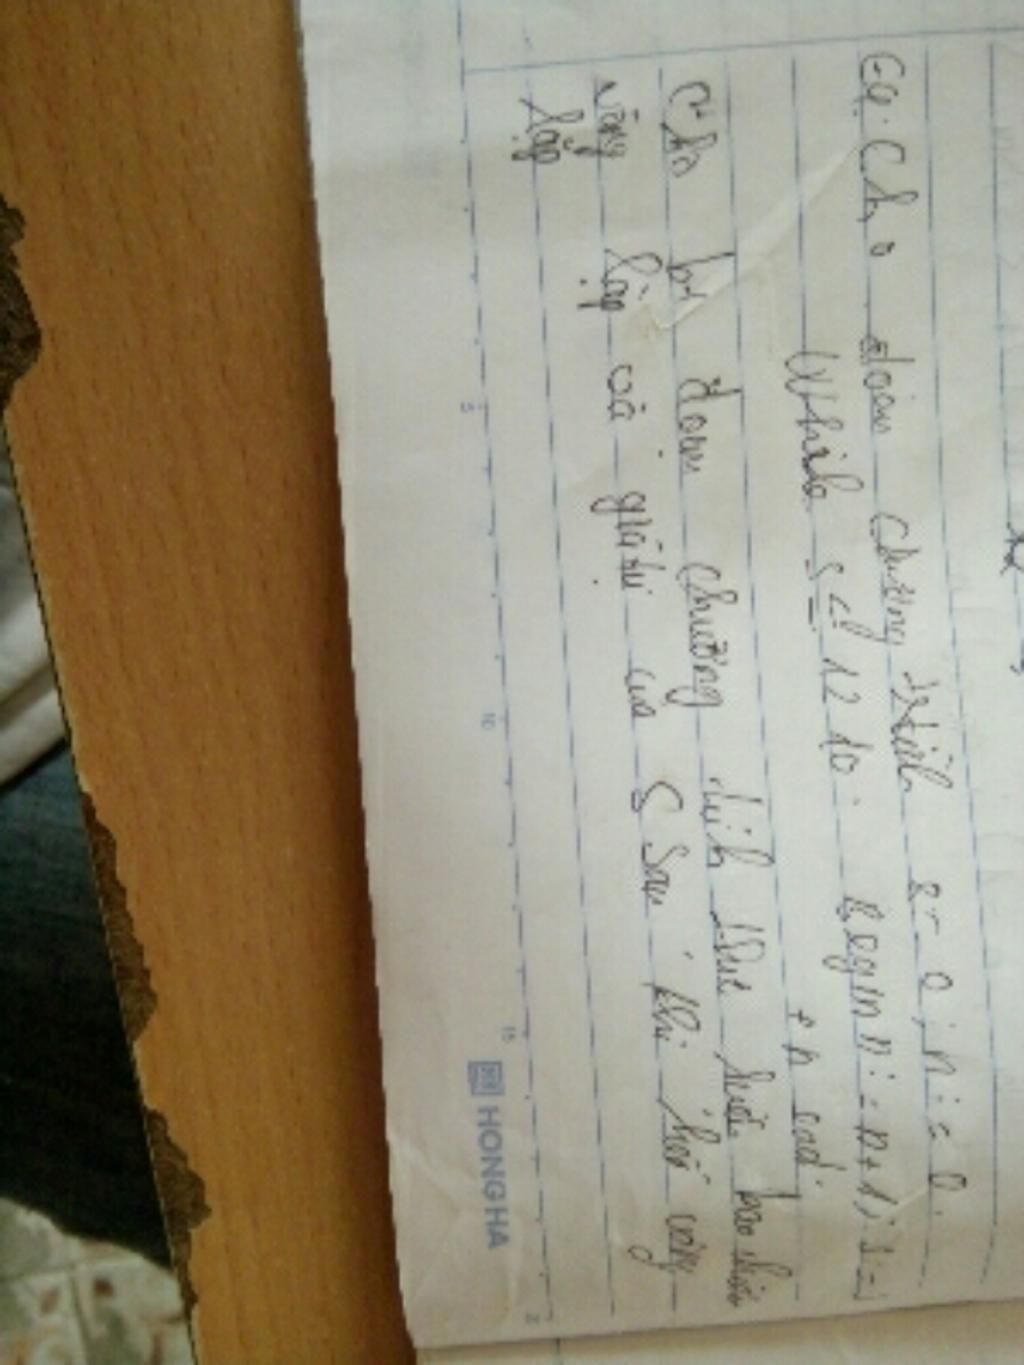 Cho đoạn chương trình s:= 0; n:= 0;
While s <= 12 10. begin n:= n+1; s:=
+ n end
Cho bt đoạn chương trình thực hiện bao nhiêu
vòng lặp và giá trị của S sau khi kết vòng
lặp
5
10
15
HONG HA